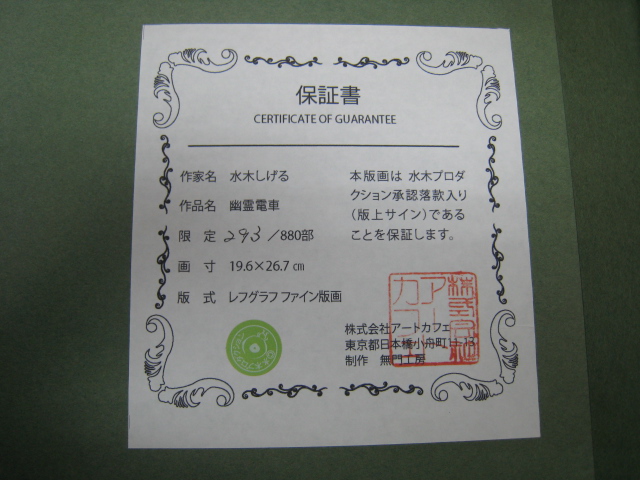 保証書
CERTIFICATE OF GUARANTEE
作家名 水木しげる
作品名 幽霊電車
限 定 293/880部
画 寸 19.6×26.7㎝
版 式 レフグラフ ファイン版画
本版画は 水木プロダ
クション承認落款入り
(版上サイン)である
ことを保証します。
株式会社アートカフェ
東京都日本橋小舟町11-13
制作 無門工房
株式会社
アート
カフェ